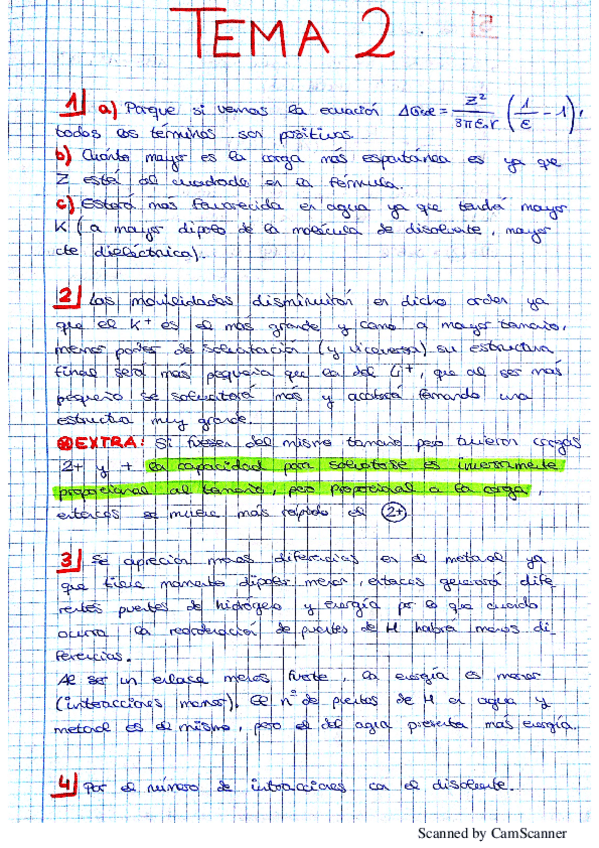 TEMA 2
1 a) Porque si vemos la ecuación ΔGel = Z² / 8πE₀r (1/ε - 1),
todos los términos son positivos.
b) Cuánto mayor es la carga más espontánea es ya que
Z está al cuadrado en la fórmula.
c) Estará más favorecida en agua ya que tendrá mayor
K (a mayor dipolo de la molécula de disolvente, mayor
cte dieléctrica).
2 Las movilidades disminuirán en dicho orden ya
que el K⁺ es el más grande y como a mayor tamaño,
menor poder de solvatación (y viceversa) su estructura
final será más pequeña que la del Li⁺, que al ser más
pequeño se solvatará más y acabará formando una
estructura muy grande.
EXTRA: Si fuesen del mismo tamaño pero tuvieran cargas
2+ y + la capacidad para solvatarse es inversamente
proporcional al tamaño, pero proporcional a la carga,
entonces se mueve más rápido el 2+
3 Se aprecian menos diferencias en el metanol ya
que tiene momento dipolar menor, entonces generará dife
rentes puentes de hidrógeno y energía por lo que cuando
ocurra la reordenación de puentes de H habrá menos di-
ferencias.
Al ser un enlace menos fuerte, la energía es menor
(interacciones menores). El nº de puentes de H en agua y
metanol es el mismo, pero el del agua presenta más energía.
4 Por el número de interacciones con el disolvente.
Scanned by CamScanner